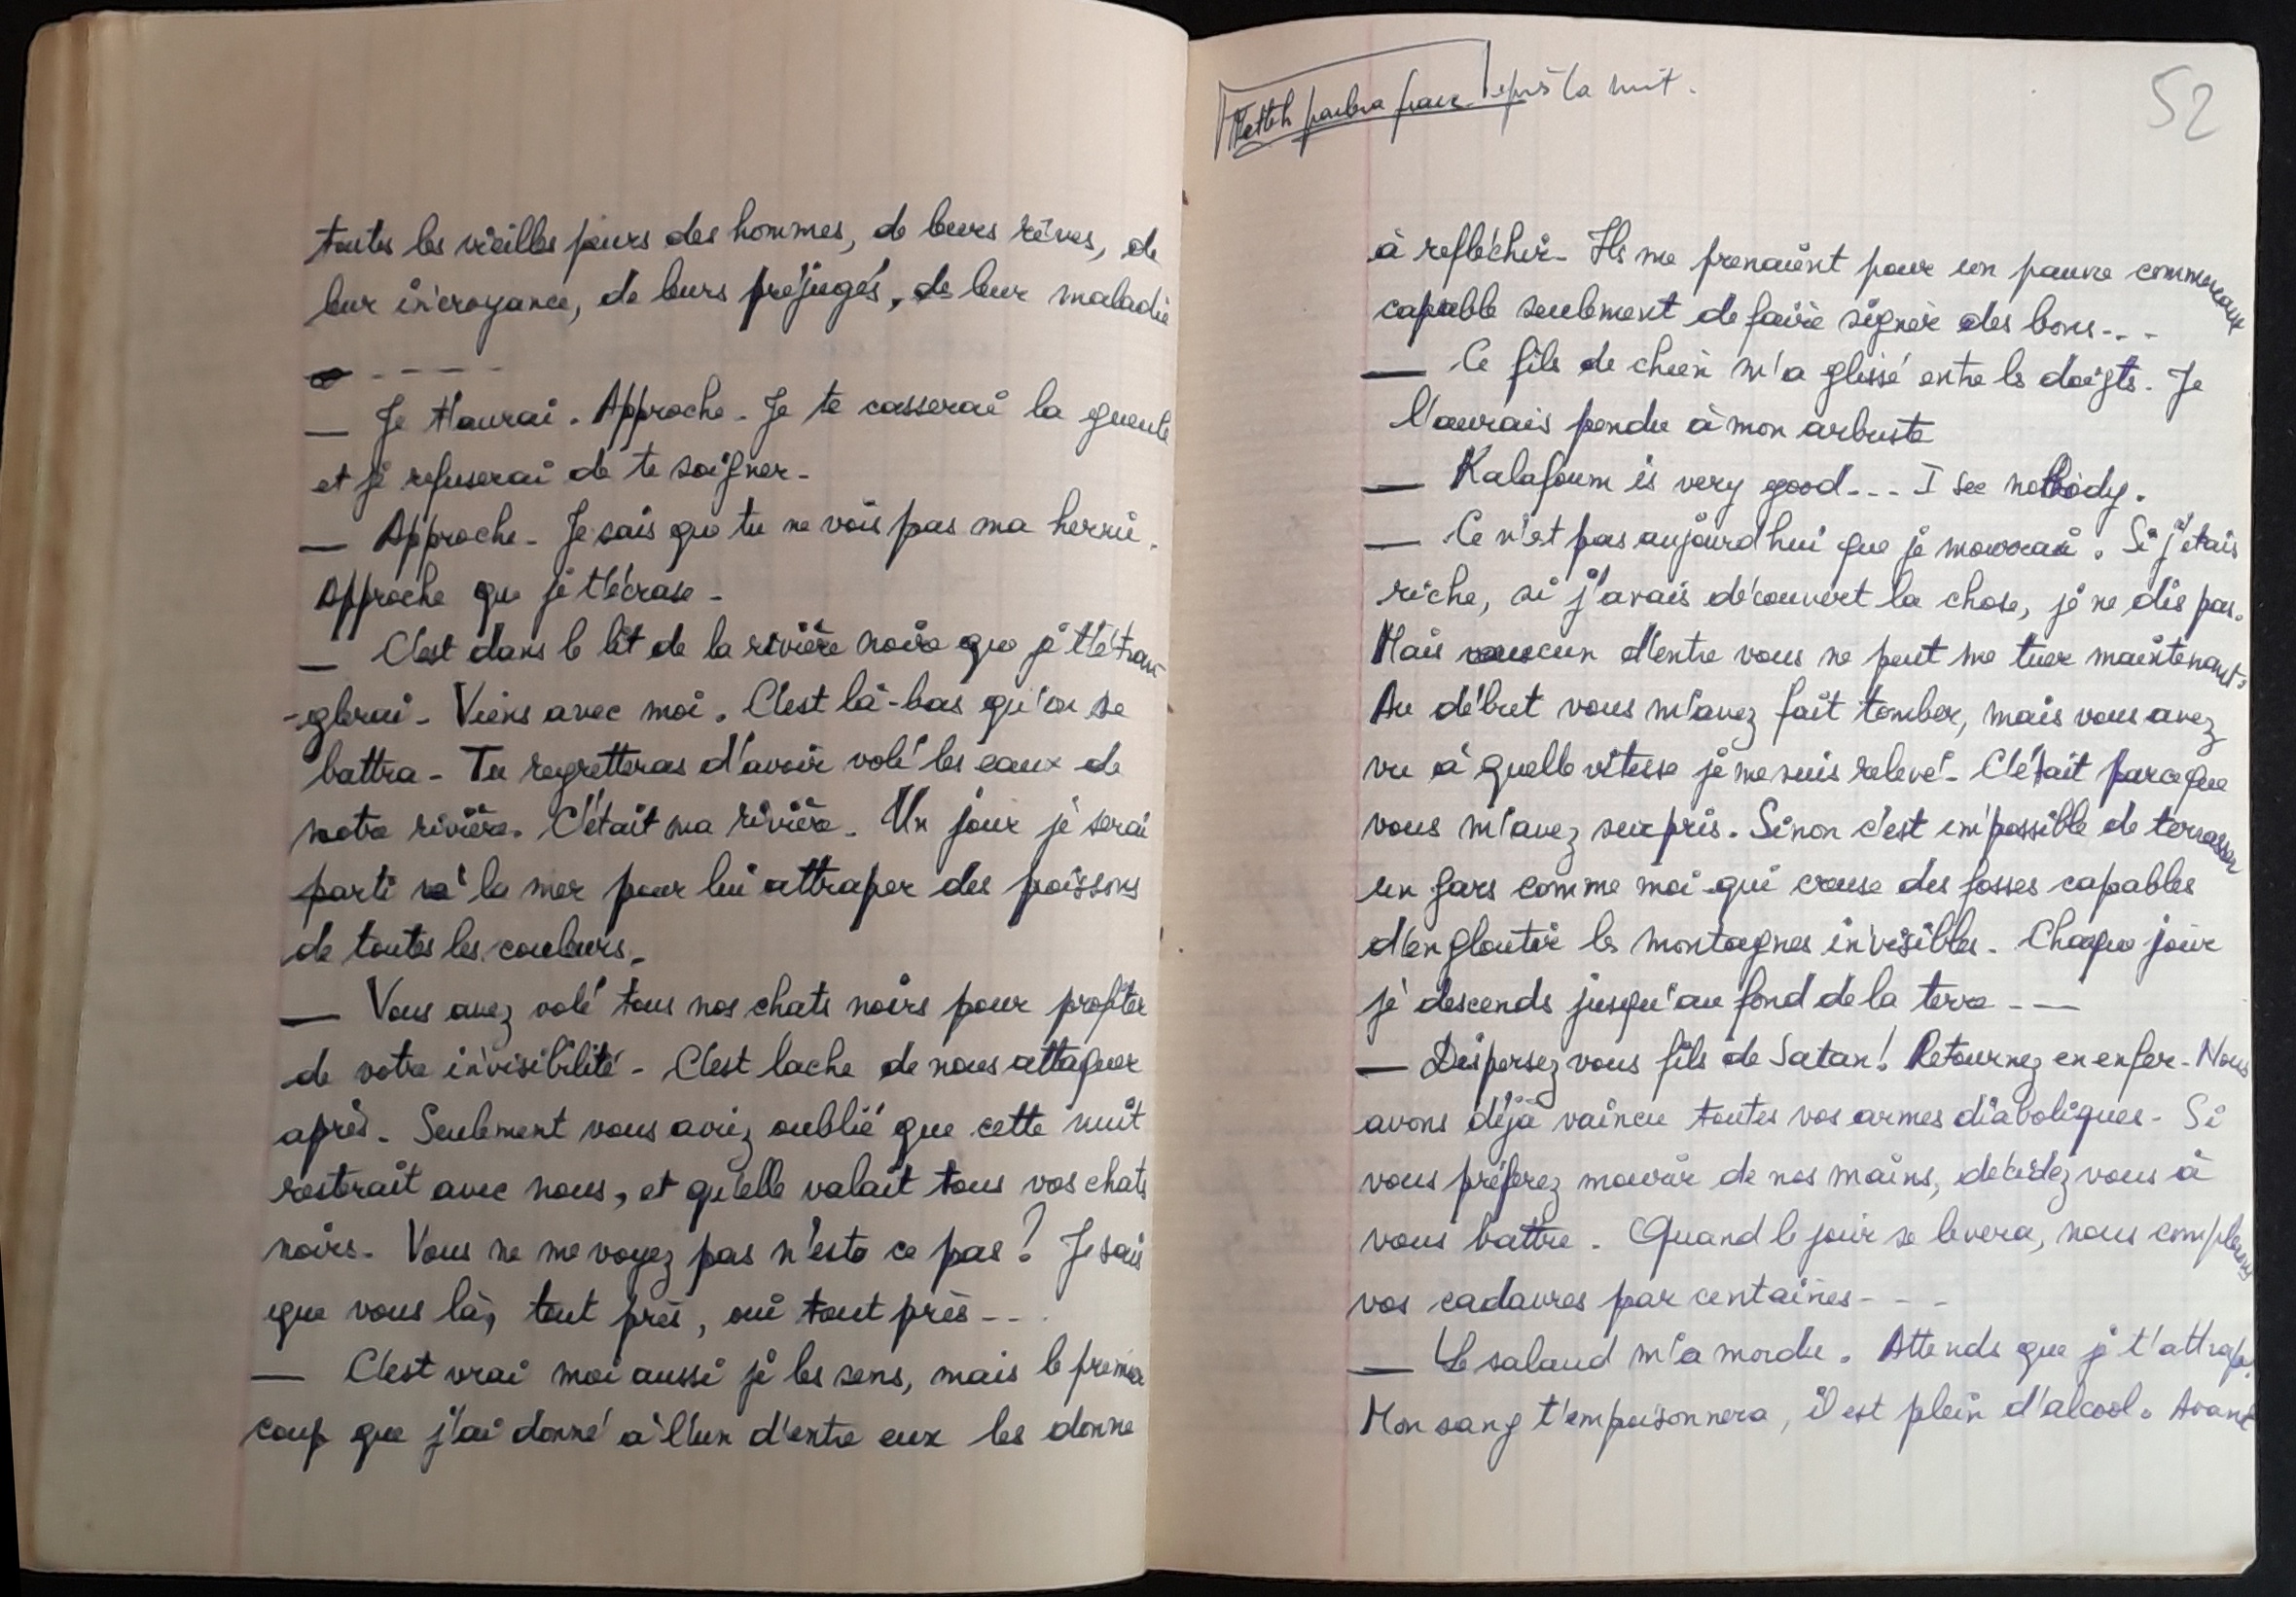 toutes les vieilles peurs des hommes, de leurs rêves, de
leur incroyance, de leurs préjugés, de leur maladie
- - - - -
— Je t'aurai. Approche. Je te casserai la gueule
et je refuserai de te soigner.
— Approche. Je sais que tu ne vois pas ma hernie.
Approche que je t'écrase.
— C'est dans le lit de la rivière noire que je t'étran
-glerai. Viens avec moi. C'est là-bas qu'on se
battra. Tu regretteras d'avoir volé les eaux de
notre rivière. C'était ma rivière. Un jour je serai
parti à la mer pour lui attraper des poissons
de toutes les couleurs.
— Vous avez volé tous nos chats noirs pour profiter
de votre invisibilité. C'est lache de nous attaquer
après. Seulement vous aviez oublié que cette nuit
resterait avec nous, et qu'elle valait tous vos chats
noirs. Vous ne me voyez pas n'este ce pas? Je sais
que vous là, tout près, oui tout près - - .
— C'est vrai moi aussi je les sens, mais le premier
coup que j'ai donné à l'un d'entre eux les donne
parlera après la nuit.
52
à reflechir. Ils me prenaient pour un pauvre
capable seulement de faire signer des bons - - -
— Ce fils de chien m'a glissé entre les doigts. Je
l'aurais pendu à mon arbuste
— Kalafoum is very good - - - I see nobody.
— Ce n'est pas aujourd'hui que je mourrai. Si j'étais
riche, si j'avais découvert la chose, je ne dis pas.
Mais aucun d'entre vous ne peut me tuer maintenant.
Au début vous m'avez fait tomber, mais vous avez
vu à quelle vitesse je me suis relevé. C'était parceque
vous m'avez surpris. Sinon c'est impossible de terrasser
un gars comme moi qui creuse des fosses capables
d'engloutir les montagnes invisibles. Chaque jour
je descends jusqu'au fond de la terre - —
— Dispersez vous fils de Satan! Retournez en enfer. Nous
avons déjà vaincu toutes vos armes diaboliques. Si
vous préferez mourir de nos mains, decidez vous à
vous battre. Quand le jour se levera, nous compterons
vos cadavres par centaines - - -
— Le salaud m'a mordu. Attends que je t'attrape.
Mon sang t'empoisonnera, il est plein d'alcool. Avant